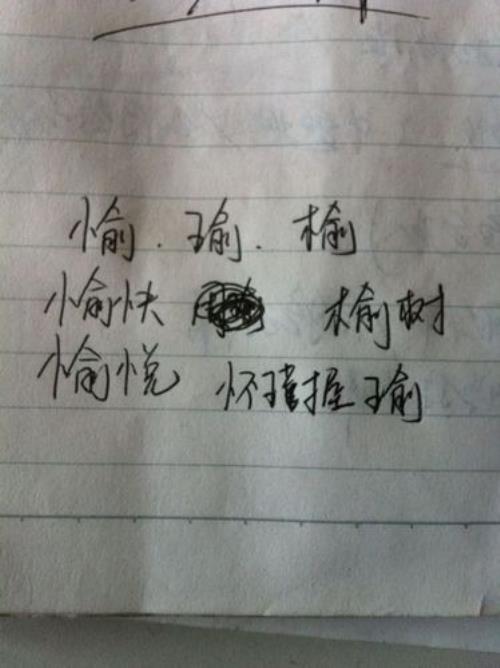 愉.瑜.榆
愉快 榆树
愉悦 怀瑾握瑜